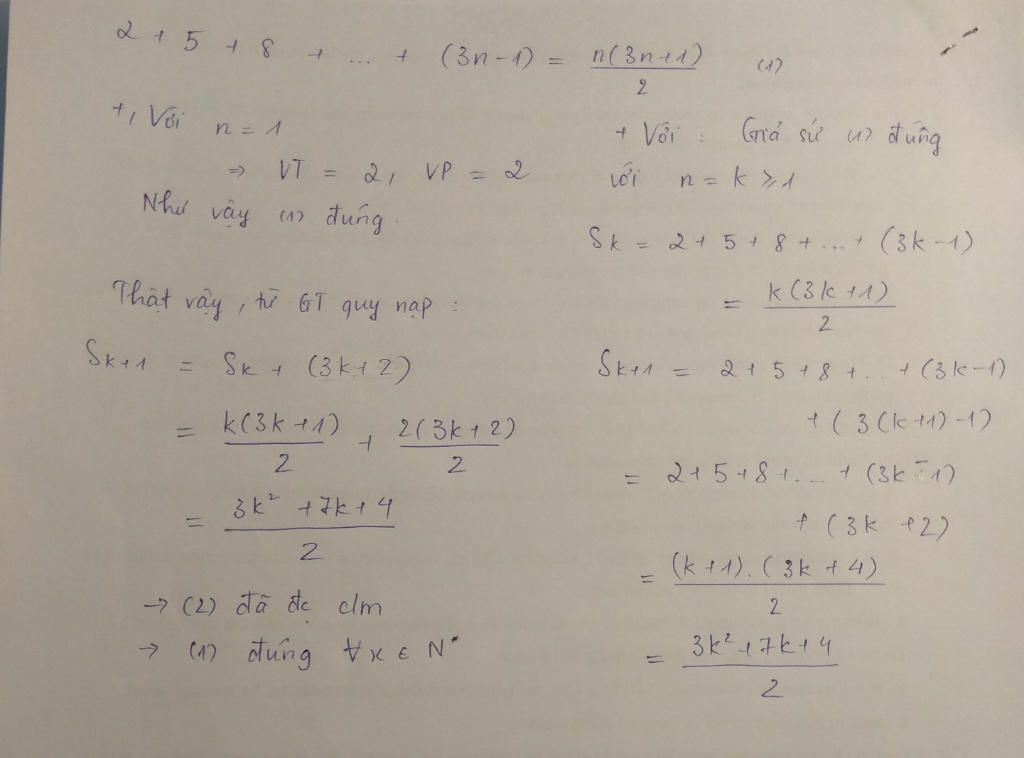 2 + 5 + 8 + ... + (3n-1) = n(3n+1)/2 (1)
+, Với n = 1
⇒ VT = 2, VP = 2
Như vậy (1) đúng.
+ Với : Giả sử (1) đúng
với n = k ⩾ 1
Sk = 2 + 5 + 8 + ... + (3k-1)
= k(3k+1)/2
Sk+1 = 2 + 5 + 8 + ... + (3k-1)
+ (3(k+1)-1)
= 2+5+8+ ... + (3k-1)
+ (3k+2)
= (k+1).(3k+4)/2
= 3k²+7k+4/2
Thật vậy, từ GT quy nạp :
Sk+1 = Sk + (3k+2)
= k(3k+1)/2 + 2(3k+2)/2
= 3k²+7k+4/2
→ (2) đã đc c/m
→ (1) đúng ∀x ∈ N*